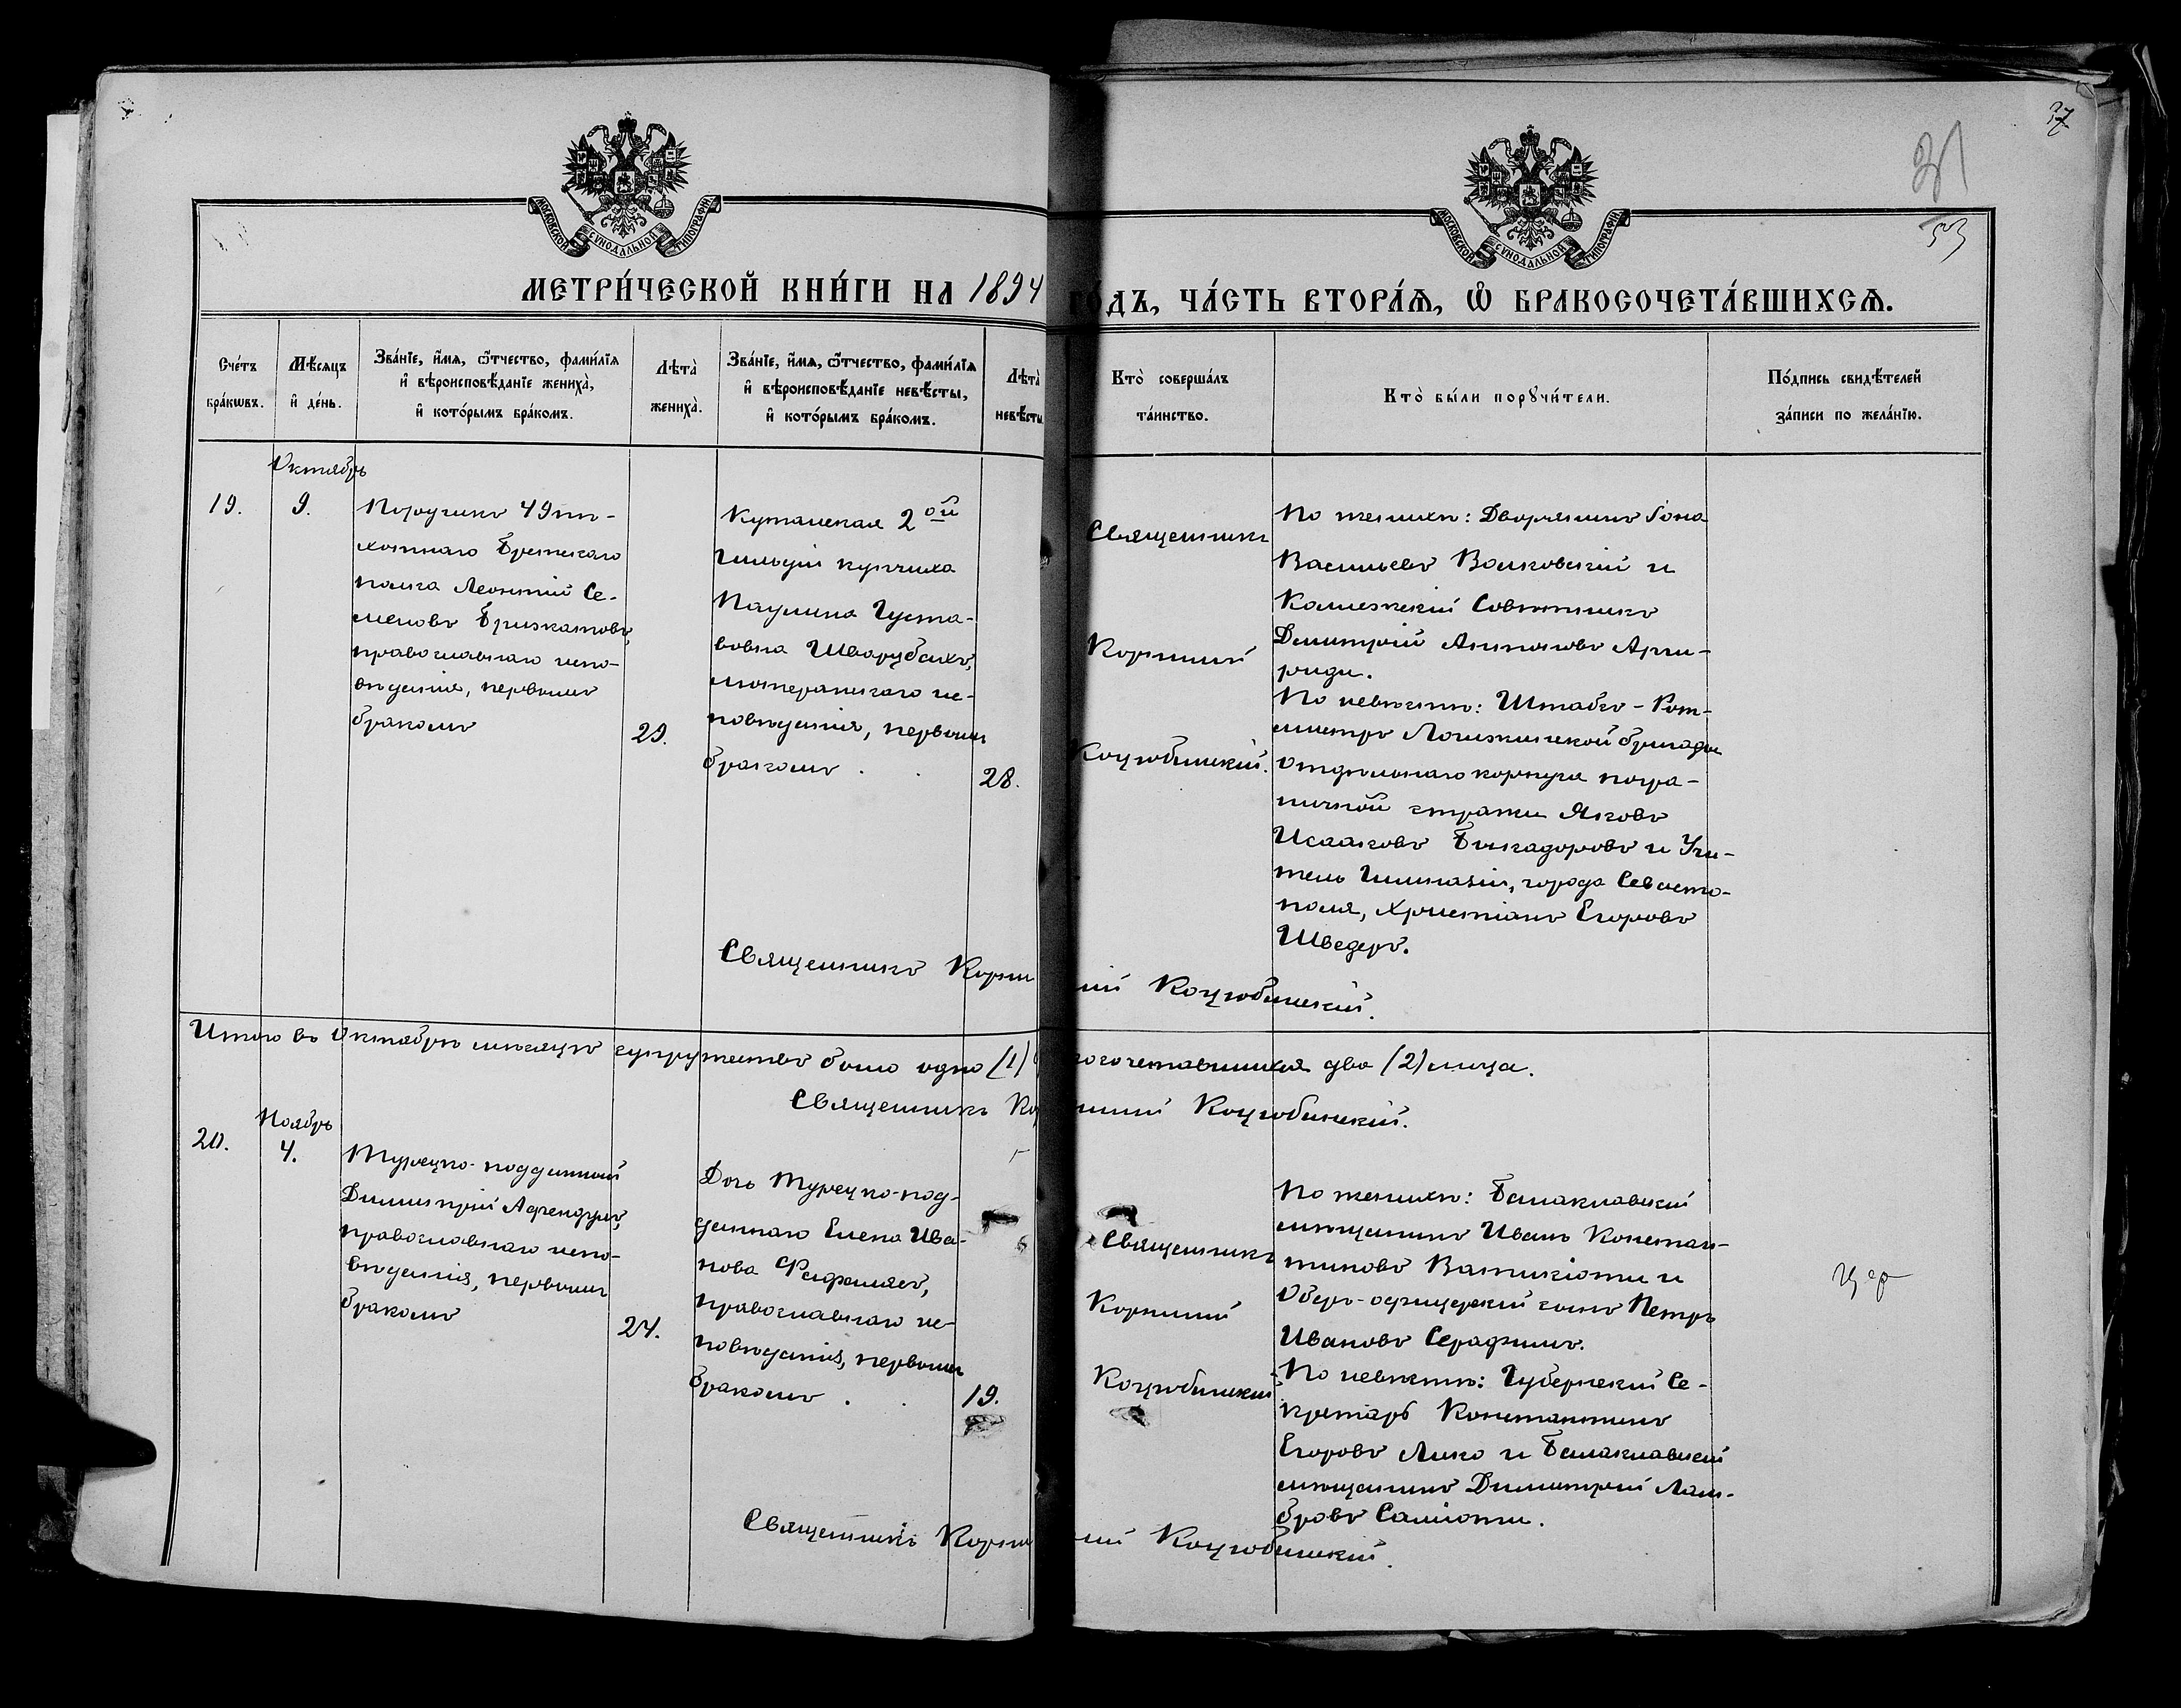 37
31
53
МОСКОВСКОЙ СѴНОДАЛЬНОЙ ТИПОГРАФІИ
МОСКОВСКОЙ СѴНОДАЛЬНОЙ ТИПОГРАФІИ
МЕТРИ́ЧЕСКОЙ КНИ́ГИ НА 1894 ГО́ДЪ, ЧА́СТЬ ВТОРА́Ѧ, Ѽ БРАКОСОЧЕТА́ВШИХСѦ.
Сче́тъ
бра́кѡвъ.
Мѣ́сѧцъ
и҆ де́нь.
Зва́нїе, и҆́мѧ, ѻ҆́тчество, фами́лїѧ
и҆ вѣроисповѣ́данїе жениха̀,
и҆ кото́рымъ бра́комъ.
Лѣта̀
жениха̀.
Зва́нїе, и҆́мѧ, ѻ҆́тчество, фами́лїѧ
и҆ вѣроисповѣ́данїе невѣ́сты,
и҆ кото́рымъ бра́комъ.
Лѣта̀
невѣ́сты
Кто̀ соверша́лъ
та́инство.
Кто̀ бы́ли порꙋчи́тели.
По́дпись свидѣ́телей
за́писи по жела́нїю.
Октябрь
19.
9.
Поручикъ 49 пѣ-
хотнаго Брестскаго
полка Леонтій Се-
меновъ
православнаго испо-
вѣданія, первымъ
бракомъ
29.
Кутаиская 2ой
гильдіи купчиха
Паулина Густа-
вовна Шварцбахъ,
лютеранскаго ис-
повѣданія, первымъ
бракомъ . .
28.
Священникъ
Корнилій
Коцюбинскій.
По женихѣ: Дворянинъ Іона
Васильевъ Волковскій и
Коллежскій Совѣтникъ
Димитрій Арги-
риди.
По невѣстѣ: Штабсъ-Рот-
мистръ бригады
Отдѣльнаго корпуса погра-
ничной стражи Яковъ
Исааковъ Бинадоровъ и Учи-
тель Гимназіи, города Севасто-
поля, Христіанъ Егоровъ
Шведеръ.
Священникъ Корнилій Коцюбинскій.
Итого въ Октябрѣ мѣсяцѣ супружествъ было одно (1) бракосочетавшихся два (2) лица.
Священникъ Корнилій Коцюбинскій.
Ноябрь
20.
4.
Турецко-подданный
Димитрій Афендулъ,
православнаго испо-
вѣданія, первымъ
бракомъ
24.
Дочь Турецко-под-
даннаго Елена Ива-
нова
православнаго ис-
повѣданія, первымъ
бракомъ . .
19.
Священникъ
Корнилій
Коцюбинскій
По женихѣ: Балаклавскій
мѣщанинъ Иванъ Констан-
тиновъ Ватикіоти и
Оберъ-офицерскій сынъ Петръ
Ивановъ Серафимъ.
По невѣстѣ: Губернскій Се-
кретарь Константинъ
Егоровъ Лико и Балаклавскій
мѣщанинъ Димитрій Лам-
бровъ Саміоти.
Священникъ Корнилій Коцюбинскій.